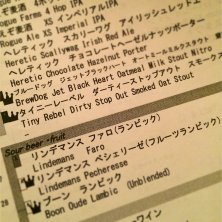 Rogue Farms & Hop IPA
XS インペリアルIPA
Rogue Ale XS Imperial IPA
ヘレティック スカリーワグ アイリッシュレッド
Heretic Scallywag Irish Red Ale
ヘレティック チョコレートヘーゼルナッツポーター
Heretic Chocolate Hazelnut Porter
ブルードッグ ジェットブラックハート オートミールミルクスタウト
BrewDog Jet Black Heart Oatmeal Milk Stout Nitro
タイニーレーベル ダーティーストップアウト スモーク
Tiny Rebel Dirty Stop Out Smoked Oat Stout
Sour beer -fruit
リンデマンス ファロ(ランビック)
Lindemans Faro
リンデマンス ペシェリーゼ(フルーツランビック)
Lindemans Pecheresse
ブーン ランビック
Boon Oude Lambic (Unblended)
ワイン